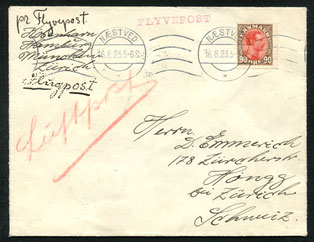 pr Flyvepost
København
Hamburg
München
Zürich
Flugpost
FLYVEPOST
NÆSTVED
16.8.23.5-6S.
NÆSTVED
16.8.23.5
DANMARK
90 ØRE 90
Luftpost
Herrn
D. Emmerich
178 Zürcherstr.
Höngg
bei Zürich
Schweiz.